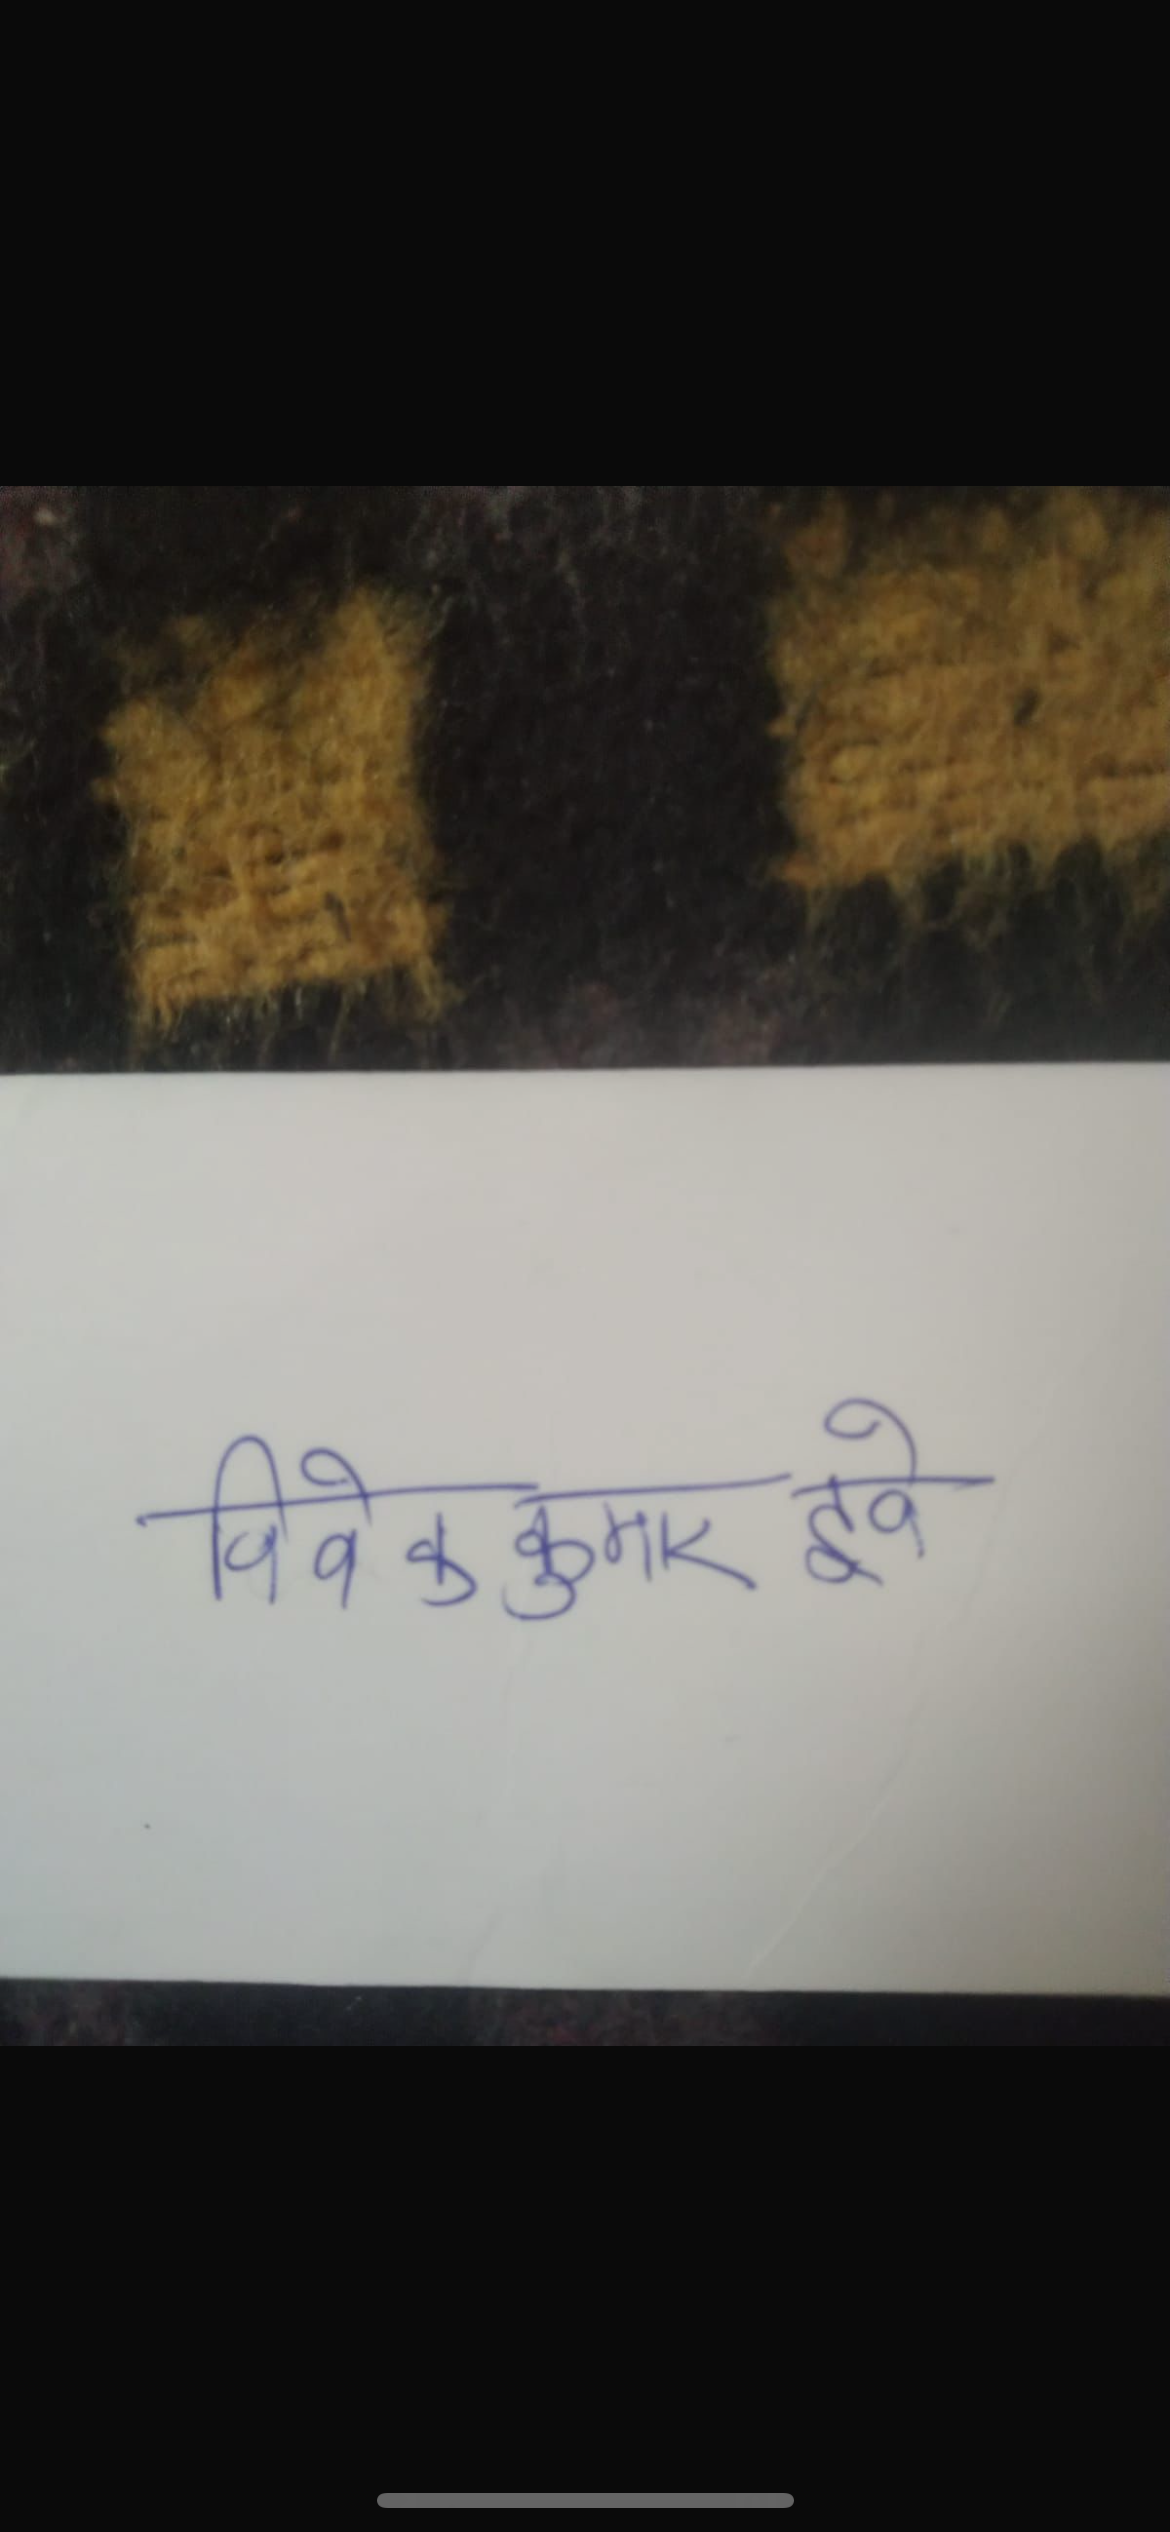 विवेक कुमार दुवे